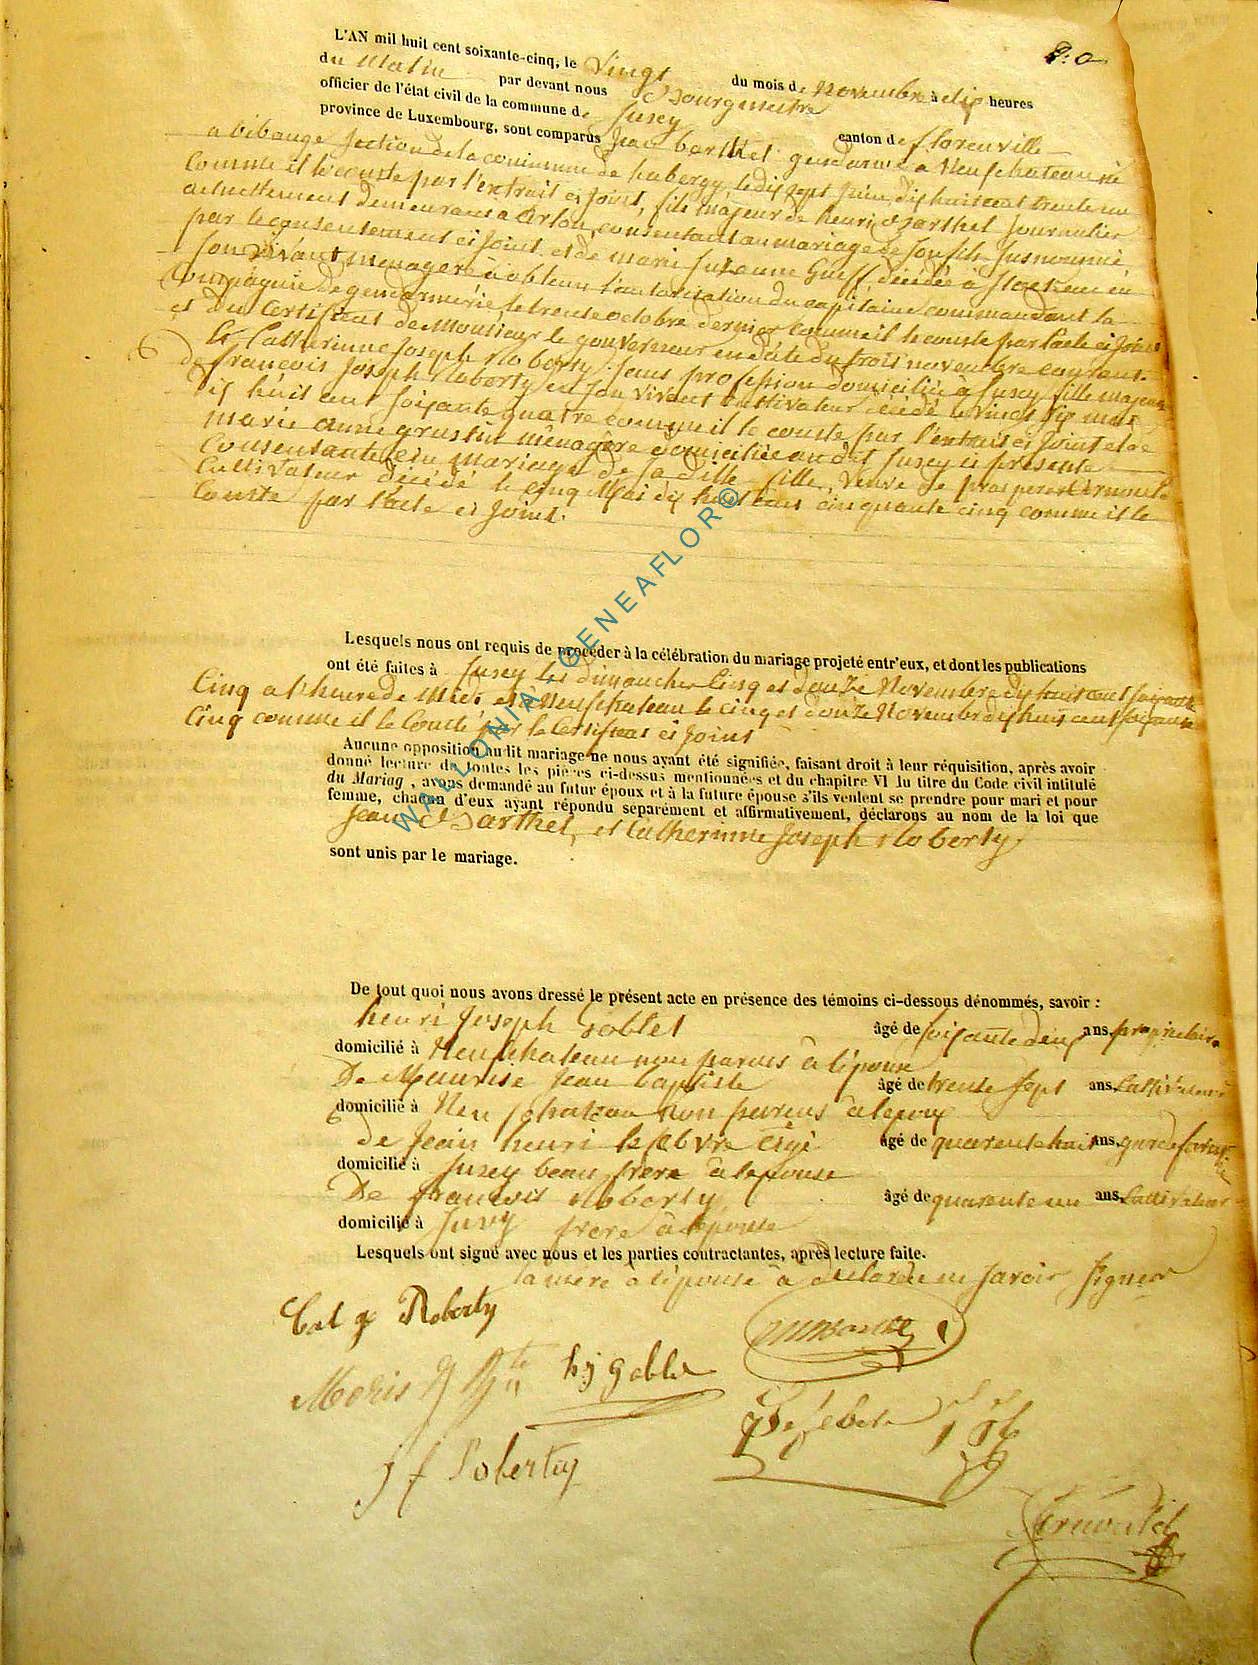 L'AN mil huit cent soixante-cinq, le Vingt du mois de Novembre à dix heures
du Matin par devant nous Bourgmestre
officier de l'état civil de la commune de Jusey canton de florenville
province de Luxembourg, sont comparus Jean barthel gendarme a Neufchateau né
a bibange Section de la commune de habergy, le dix sept Juin dix huit cent trente un
Comme il le conste par l'extrait ci Joint, fils majeur de henri Barthel Journalier
actuellement demeurant a Arlon, consentant au mariage de Son fils Susnommé,
par le consentement ci Joint et de marie Suzanne Gueff, décédée à
Son Vivant menagere à obtenu l'autorisation du capitaine commandant la
Compagnie de gendarmerie le trente octobre dernier comme il le conste par l'acte ci Joint
et du Certificat de Monsieur le gouverneur en date du trois novembre courant.
Et Catherinne Joseph Roberty Sans profession domiciliée a Jusey fille majeure
de françois Joseph Roberty en Son Vivant Cultivateur décédé le vingt six mars
dix huit cent soixante quatre comme il le conste par l'extrait ci Joint et de
marie anne grustin ménagère domiciliée au dit Jusey ci présente
Consentante au mariage de Sa dille fille, Veuve de prosper
Cultivateur décédé le cinq Mai dix huit cent cinquante cinq comme il le
Conste par l'acte ci Joint.
Lesquels nous ont requis de procéder à la célébration du mariage projeté entr'eux, et dont les publications
ont été faites à Jusey les dimanches Cinq et douze Novembre dix huit cent soixante
Cinq a l'heure de Midi et à Neufchateau le cinq et douze Novembre dix huit cent soixante
Cinq comme il le Conste par le Certificat ci Joint
Aucune opposition au dit mariage ne nous ayant été signifiée, faisant droit à leur réquisition, après avoir
donné lecture de toutes les pièces ci-dessus mentionnées et du chapitre VI du titre du Code civil intitulé
du Mariag , avons demandé au futur époux et à la future épouse s'ils veulent se prendre pour mari et pour
femme, chacun d'eux ayant répondu séparément et affirmativement, déclarons au nom de la loi que
Jean Barthel, et Catherinne Joseph Roberty
sont unis par le mariage.
De tout quoi nous avons dressé le présent acte en présence des témoins ci-dessous dénommés, savoir :
henri Joseph Goblet âgé de soixante deux ans, propriétaire
domicilié à Neufchateau non parent à l'épouse
De Maurise Jean baptiste âgé de trente Sept ans, Cultivateur
domicilié à Neufchateau non parent à l'époux
de Jean henri lefebvre âgé de quarente huit ans, garde forest
domicilié à Jusey beau frere à l'épouse
De françois Roberty âgé de quarente un ans, Cultivateur
domicilié à Jusey frere à l'épouse
Lesquels ont signé avec nous et les parties contractantes, après lecture faite.
la mère à l'épouse à déclaré ne Savoir Signer
Cat j Roberty
Moris J Bte
hj Goblet
J f Roberty